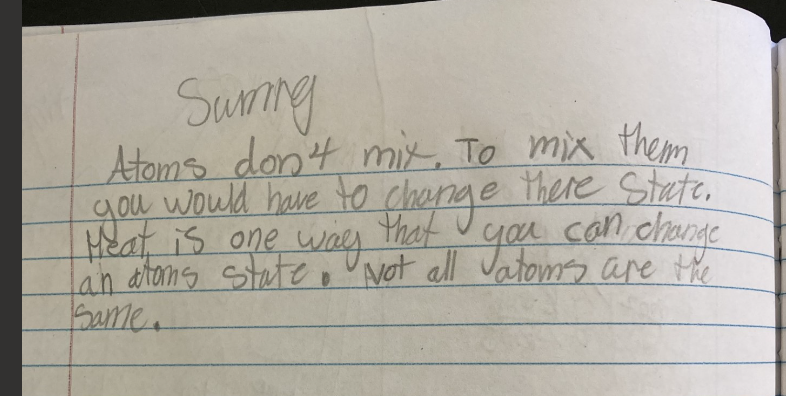 Sumrg
Atoms don4 mix. To mix them
you would have to change there State.
Heat is one way that you can change
an atoms state. Not all atoms are the
same.